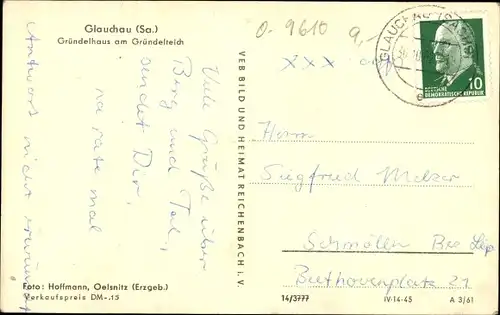 Glauchau (Sa.)
Gründelhaus am Gründelteich
O. 9610
GLAUCHAU (SACHS)
DEUTSCHE
DEMOKRATISCHE REPUBLIK
10
Viele Grüße über
Berg und Tal,
sendet Dir,
na rate mal
Antwort nicht erwünscht
VEB BILD UND HEIMAT REICHENBACH i. V.
Herrn
Siegfried Melzer
Schmölln Bez Lpg
Beethovenplatz 21
Foto: Hoffmann, Oelsnitz (Erzgeb.)
Verkaufspreis DM -.15
14/3777
IV-14-45
A 3/61